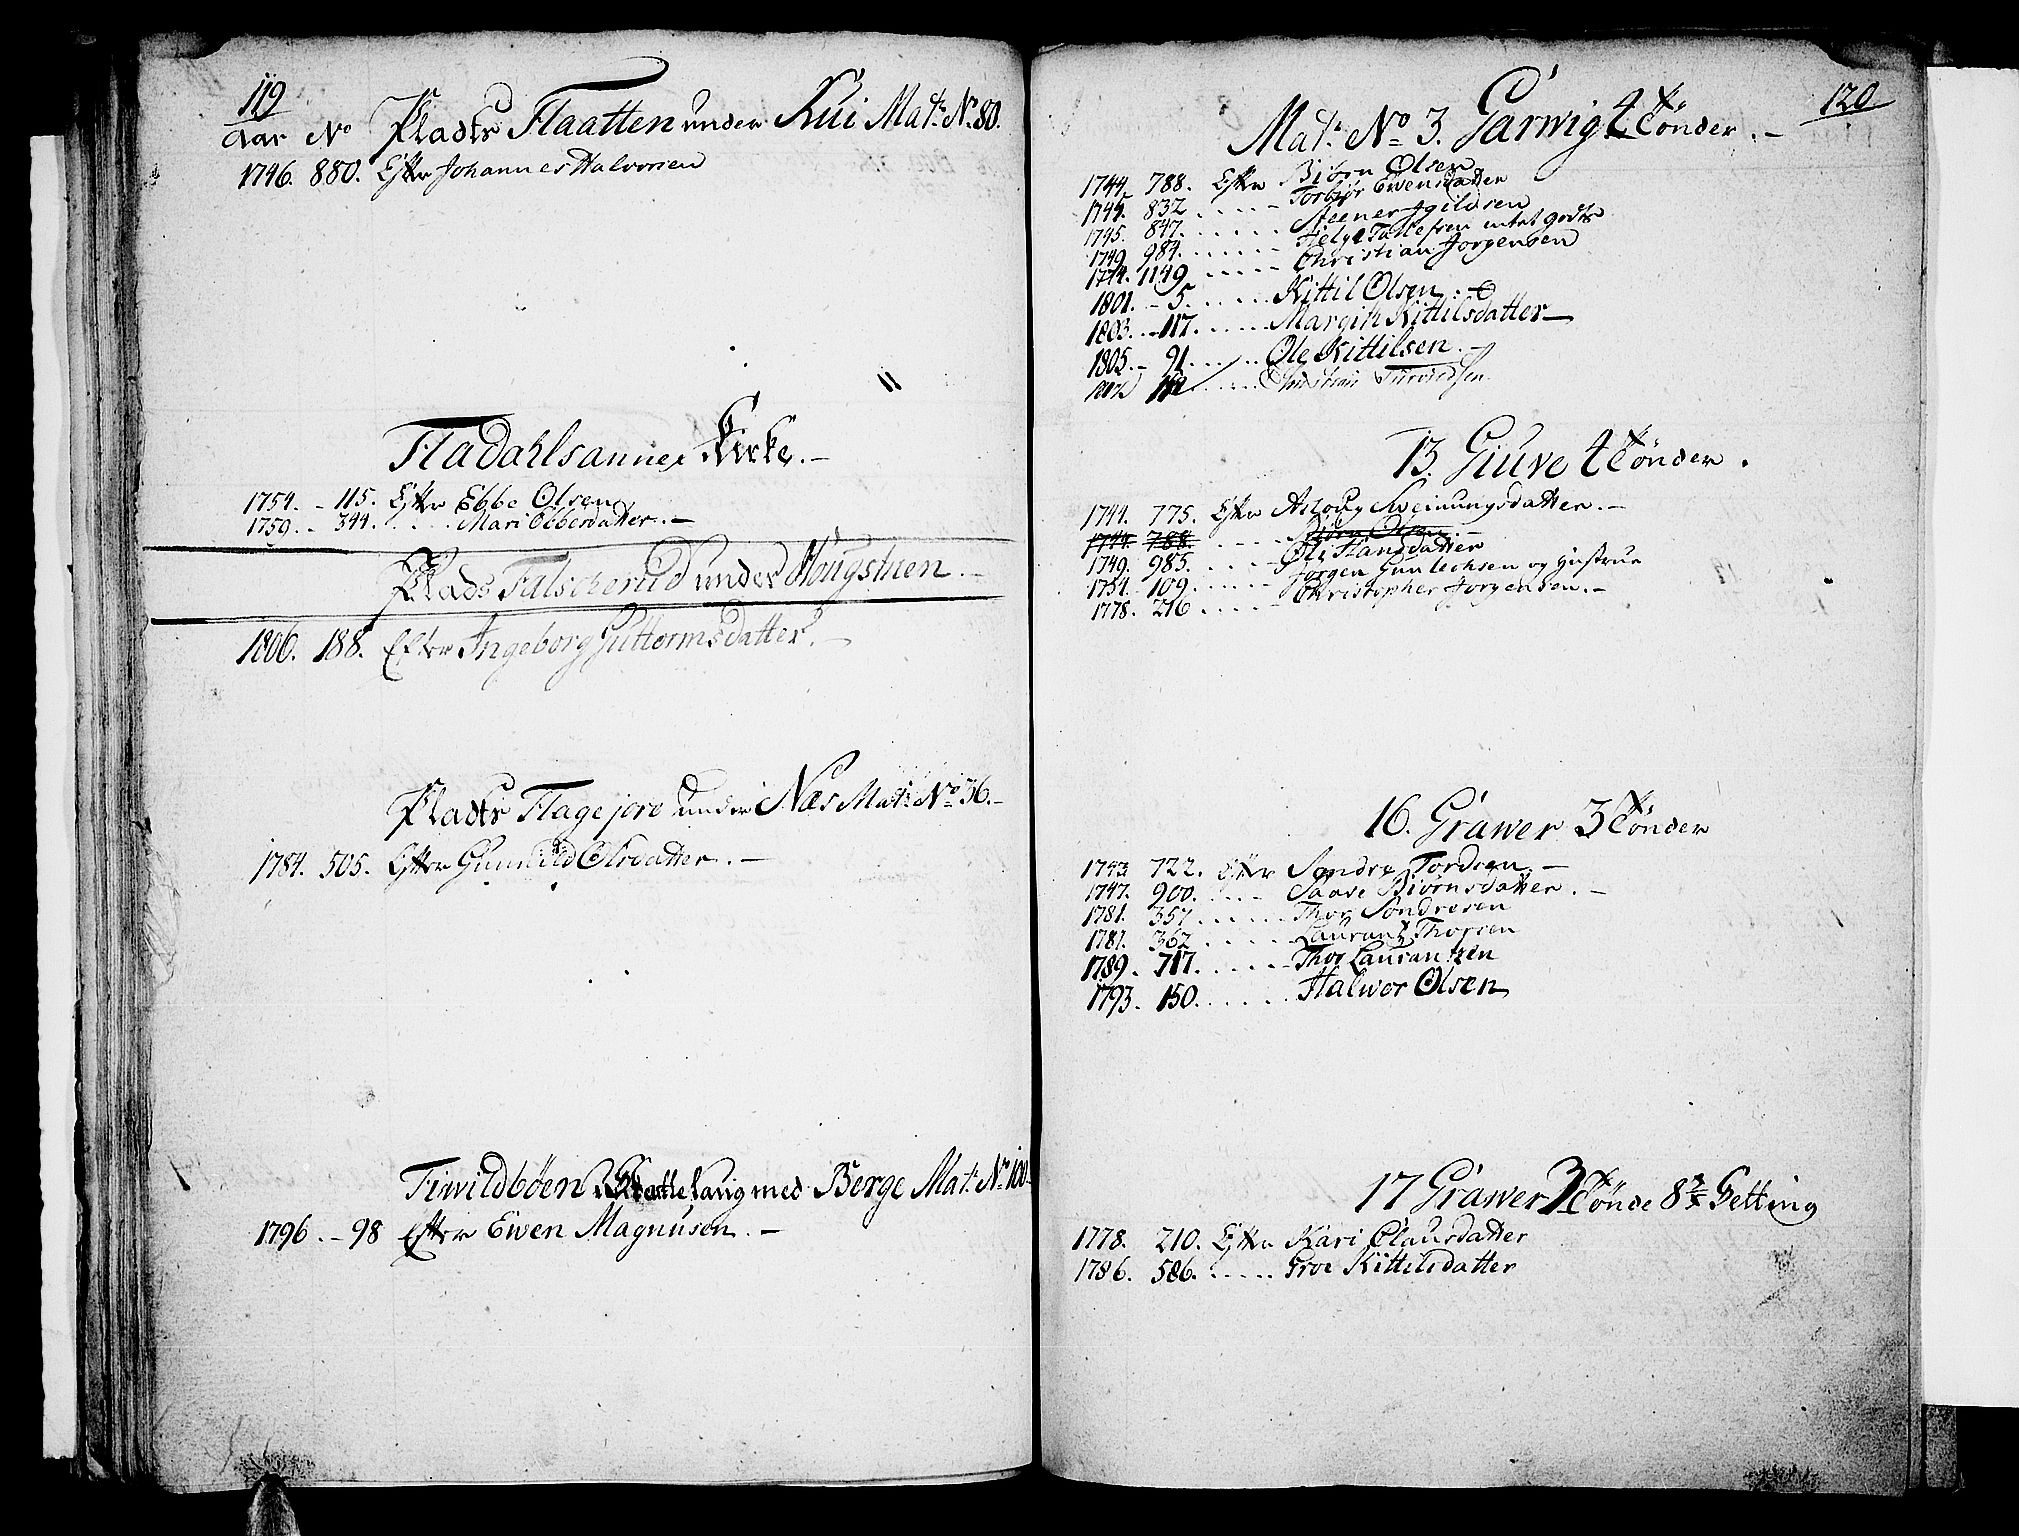 119
Aar No Pladts Flaatten under Rui Mat: No 80.
1746. 880. Efter Johannes Halvorsen
Fladahlsannex Kirke.-
1754. - 115. Efter Ebbe Olsen
1759. - 344. .... Mari Ebbesdatter. -
Plads Falscherud under Hougstuen. -
1806. 188. Efter Ingeborg Guttormsdatter. -
Pladts Flagejore under Næs Mat: No 36. -
1784. 505. Efter Gunild Olsdatter. -
Fiwildbøen laug med Berge Mat: No 100
1796. - 98 Efter Ewen Magnusen. -
120
Mat: No 3. Garwig 4 Tønder. -
1744. 788. Efter Biørn Olsen
1745. 832 ..... - Torbjør Ewensdatter
1745. 847. ...... Steener
1749. 984. ...... Helge Tallefsen intet godts
1774. 1149 ..... - Christian Jorgensen
1801. - 5. ...... Kittil Olsen. -
1803. - 117. ..... Margith Kittilsdatter -
1805. - 91. ..... Ole Kittilsen. -
...... Christian
13. Giuve 4 Tønder.
1744. 775. Efter Asloug Sweinungsdatter. -
1744. 788. ..... Biørn Olsen
1749. 985. ..... Hansdatter
1754. 109. ..... Jorgen Gunlechsen og Hustrue
1778. 216 ..... - Christopher Jorgensen. -
16. Grawer 3 Tønder
1743. 722. Efter Søndre Tordsen. -
1747. 900. .... Saave Biørnsdatter. -
1781. 357 ...... Thor Søndresen
1781. 362 ...... Laurantz Thorsen
1789. 717. ..... - Thor Laurantzen
1793. 150. ..... Halwor Olsen
17 Grawer Tønde 8 Setting
1778. 210. Efter Kari Clausdatter
1786. 586. ..... Groe Kittilsdatter